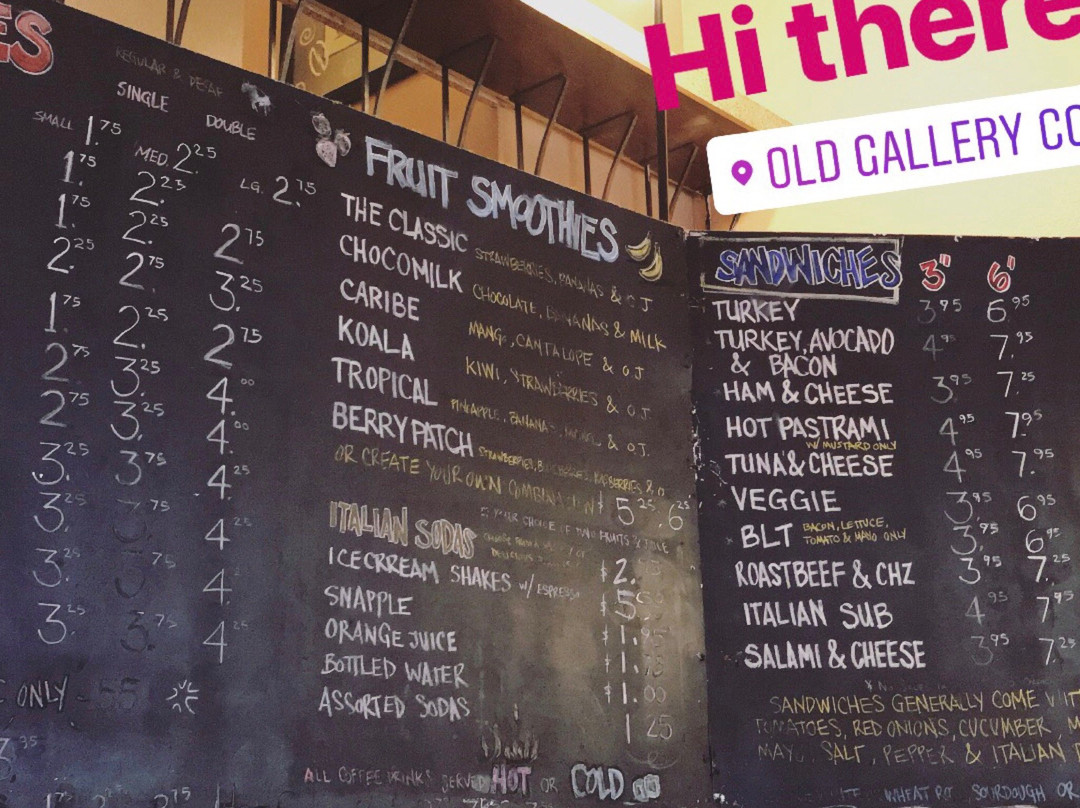 Hi there
OLD GALLERY CO
ES
REGULAR & DECAF
SINGLE
DOUBLE
SMALL 1.75 MED. 2.25 LG. 2.75
1.75 2.25
1.75 2.25 2.75
2.25 2.75 3.25
1.75 2.25 2.75
2.75 3.25 4.00
2.75 3.25 4.00
3.25 3.75 4.25
3.25 3.75 4.25
3.25 3.75 4.25
3.25 3.75 4.25
ONLY
FRUIT SMOOTHIES
THE CLASSIC STRAWBERRIES, BANANAS & OJ
CHOCOMILK CHOCOLATE, BANANAS & MILK
CARIBE MANGO, CANTALOPE & OJ
KOALA KIWI, STRAWBERRIES & OJ
TROPICAL PINEAPPLE, BANANA & OJ.
BERRY PATCH STRAWBERRIES,
OR CREATE YOUR OWN COMBINATION $5.25 6.25
YOUR CHOICE OF FRUITS
ITALIAN SODAS
$2.
ICECRREAM SHAKES W/ ESPRESSO $5.50
SNAPPLE $1.95
ORANGE JUICE $1.75
BOTTLED WATER $1.00
ASSORTED SODAS 1.25
ALL COFFEE DRINKS SERVED HOT OR COLD
SANDWICHES 3" 6"
TURKEY 3.95 6.95
TURKEY, AVOCADO & BACON 4.95 7.95
HAM & CHEESE 3.95 7.25
HOT PASTRAMI 4.95 7.95
W/ MUSTARD ONLY
TUNA & CHEESE 4.95 7.95
VEGGIE 3.95 6.95
BLT BACON, LETTUCE, TOMATO & MAYO ONLY 3.95 6.95
ROASTBEEF & CHZ 3.95 7.25
ITALIAN SUB 4.95 7.95
SALAMI & CHEESE 3.95 7.25
SANDWICHES GENERALLY COME WIT
TOMATOES, RED ONIONS, CUCUMBER, M
MAYO, SALT, PEPPER & ITALIAN
WHEAT SOURDOUGH OR